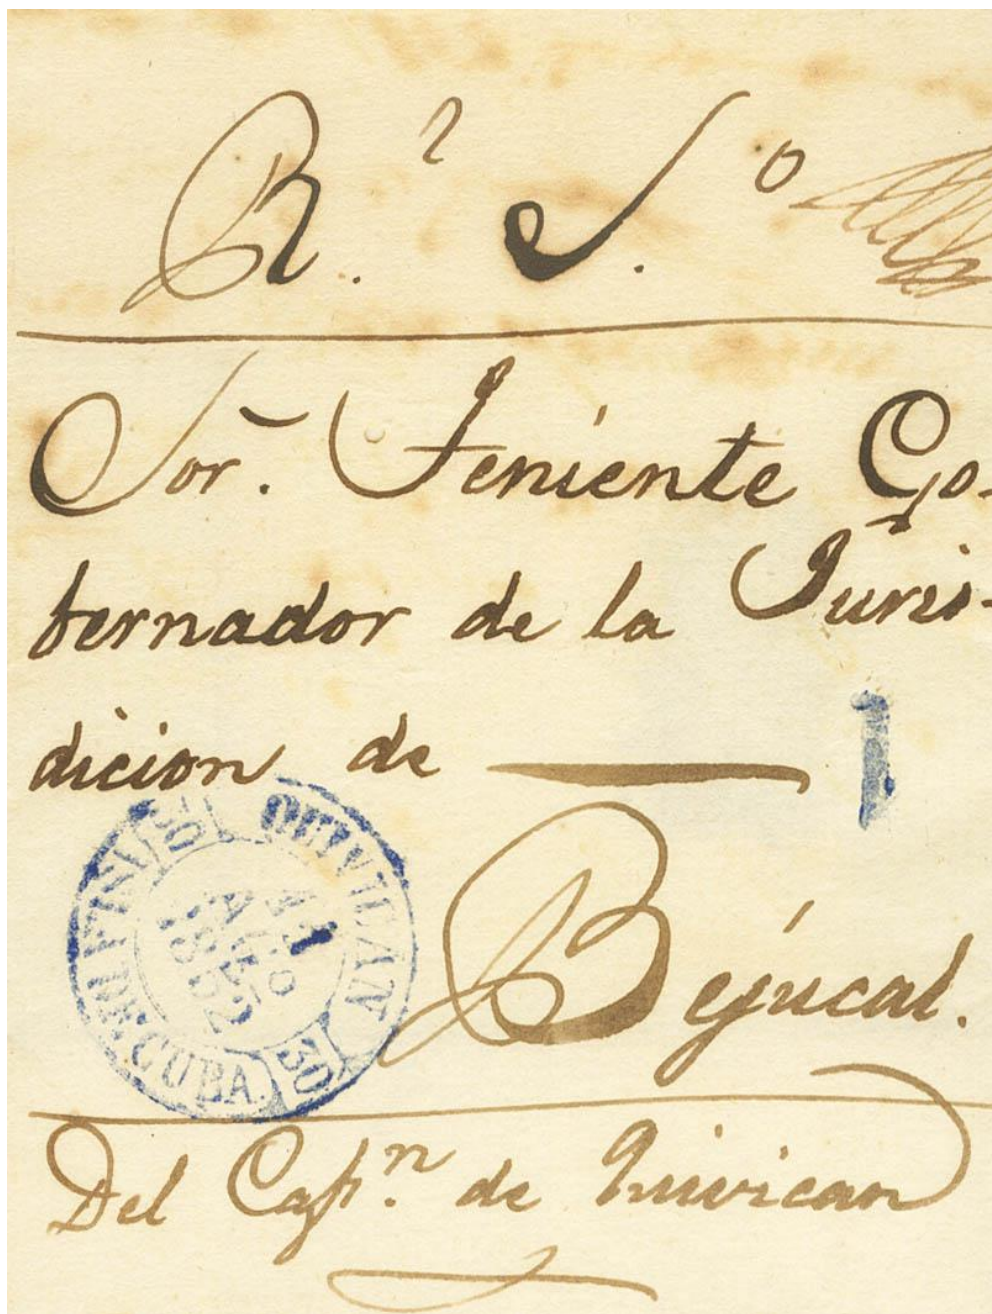 R.l S.o
Sor. Teniente Go-
bernador de la Juris-
dicion de
1
Bejucal.
QUIVICAN
30
YSLA DE CUBA.
30
AGO
1852
Del Capn. de Quivican